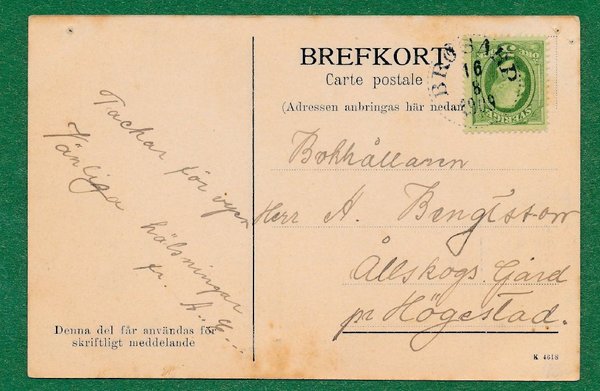 BREFKORT
Carte postale
(Adressen anbringas här nedan
BRÖSARP
16
8
1909
5 ÖRE 5
SVERIGE
Tackar för
Vänliga hälsningar
fr. A. G.
Bokhållaren
Herr A. Bengtsson
Ållskogs Gård
pr Högestad.
Denna del får användas för
skriftligt meddelande
K 4618